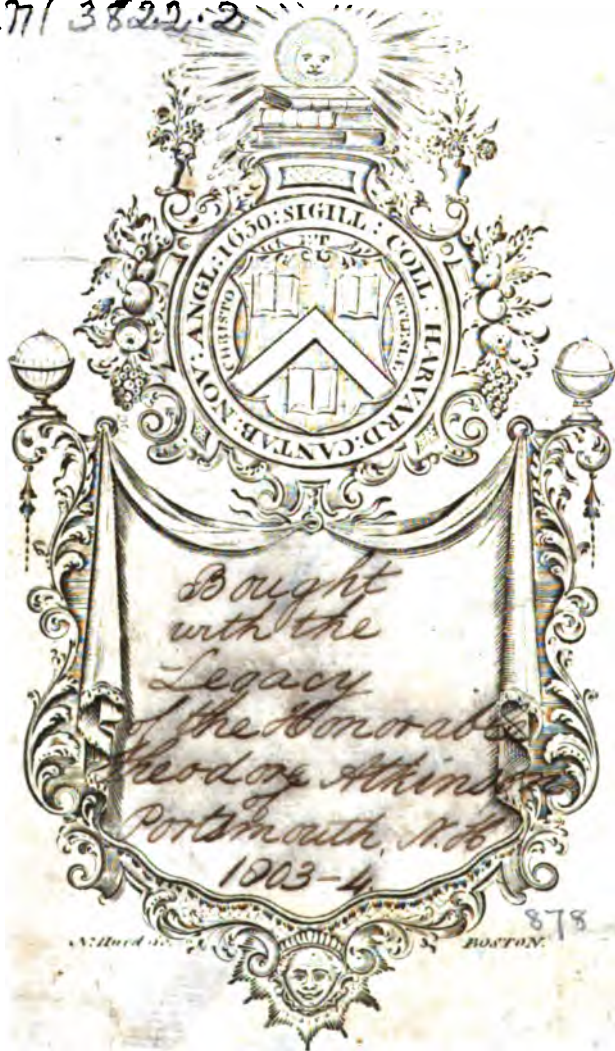 3822.2
SIGILL : COLL : HARVARD : CANTAB : NOV : ANGL : 1650 :
ET
CHRISTO
ECCLESIÆ
Bought
with the
Legacy
of the Honorable
Theodore Atkinson
of
Portsmouth, N.H
1803-4.
878
N: Hurd Sc.
BOSTON.